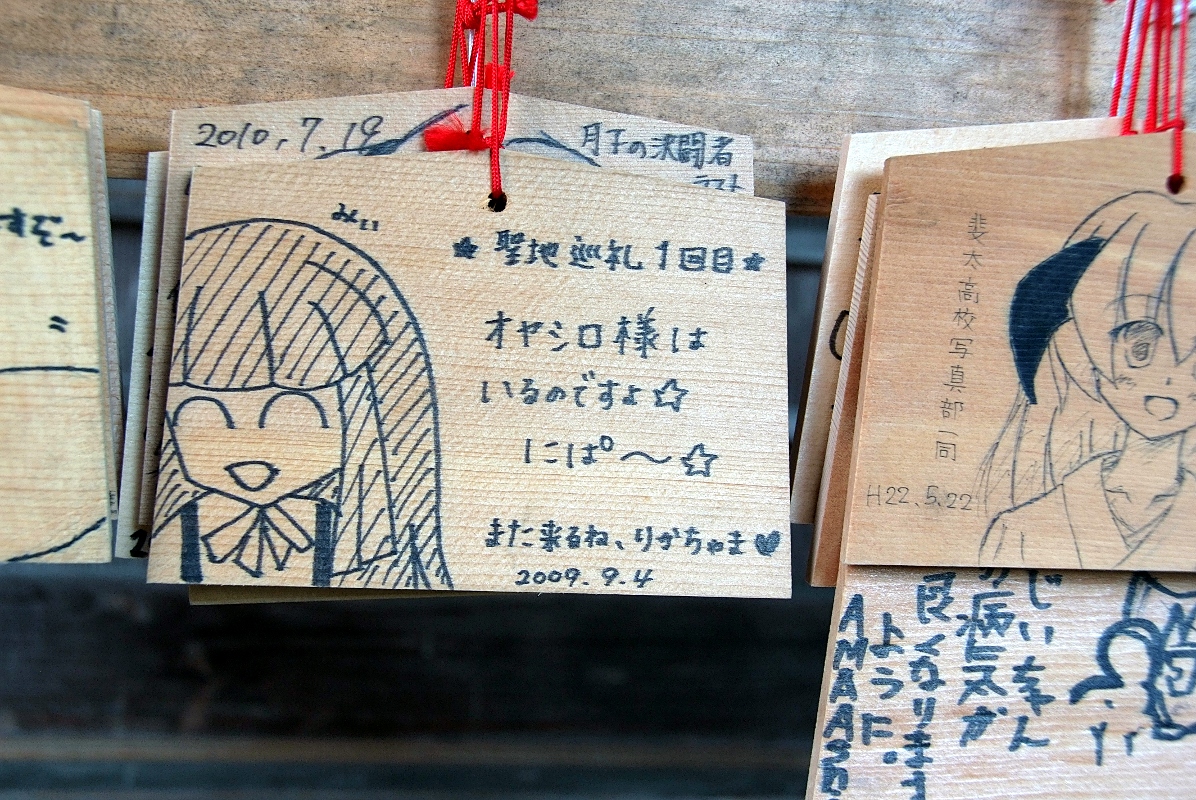 すぞ〜
2010.7.19
月子の決闘者
みぃ
★聖地巡礼1回目★
オヤシロ様は
いるのですよ☆
にぱ°〜☆
また来るね、りかちゃま♥
2009.9.4
斐太高校写真部一同
H22.5.22
じいちゃん
の病気が
良くなります
ように。